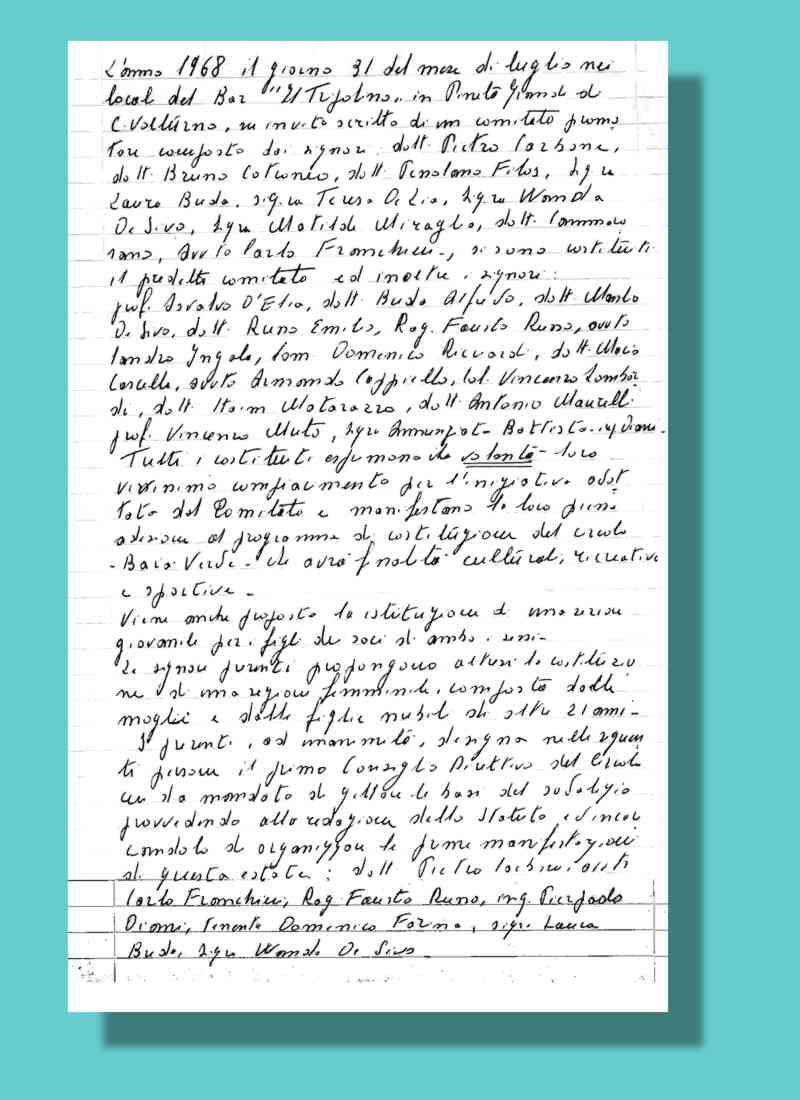 L'anno 1968 il giorno 31 del mese di luglio nei
local del Bar "El Trifolino" in Pineta Grande di
C. Volturno, su invito scritto di un comitato promo
tore composto dai signori: dott. Pietro Carbone,
dott. Bruno Cotroneo, dott. Filos, Sig.ra
Laura Buda, sig.ra Teresa De Lia, sig.ra Wanda
De Sivo, sig.ra Matilde Miraglia, dott.
avv.to Carlo Franchini, si sono costituiti
il predetto comitato ed inoltre i signori:
prof. Osvaldo D'Elia, dott. Buda Alfredo, dott. Manlio
De Sivo, dott. Runo Emilio, Rag. Fausto Runo, avv.to
Sandro Ingala, Com. Domenico Riccardi, dott. Mario
avv.to Armando Cappiello, Col. Vincenzo Lombar
di, dott. Matarazzo, dott. Antonio Maurelli
prof. Vincenzo Muto, sig.ra Annunziata Battista in Diomi.
Tutti i costituiti esprimono la volontà loro
vivissimo compiacimento per l'iniziativa adot
tata dal Comitato e manifestano la loro piena
adesione al programma di costituzione del circolo
- Baia Verde - che avrà finalità culturali, ricreative
e sportive -
Viene anche proposta la istituzione di una sezione
giovanile per i figli dei soci di ambo i sessi -
Le signore presenti propongono altresì la costituzio
ne di una sezione femminile, composta dalle
mogli e dalle figlie nubili di oltre 21 anni -
I presenti, ad unanimità, designa nelle seguen
ti persone il primo Consiglio Direttivo del Circolo
con il mandato di gettare le basi del sodalizio
provvedendo alla redazione dello Statuto e
di organizzare le prime manifestazioni
di questa estate: dott. Pietro Carbone, avv.to
Carlo Franchini, Rag. Fausto Runo, ing. Pierpaolo
Diomi, Tenente Domenico Farina, sig.ra Laura
Buda, sig.ra Wanda De Sivo -